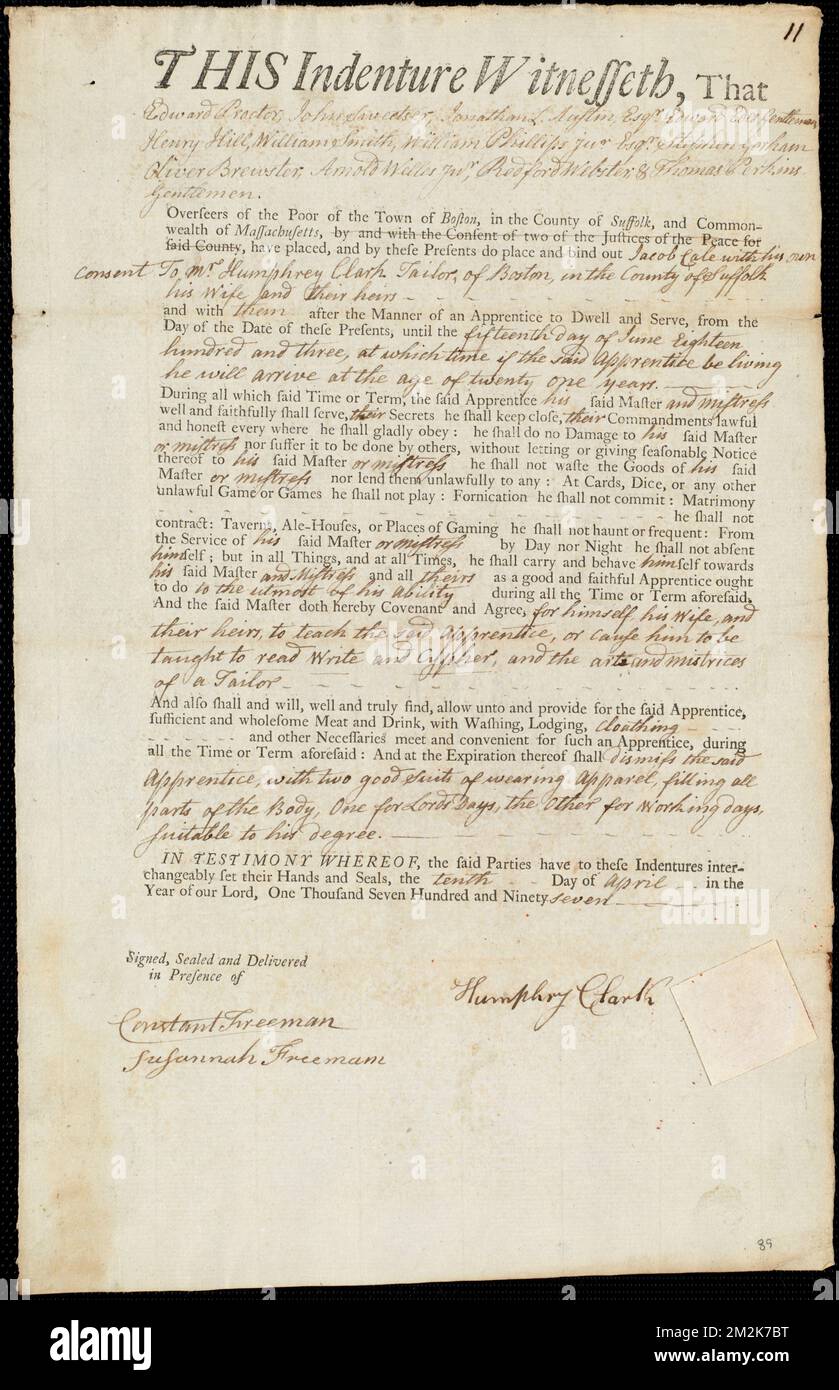 11
THIS Indenture Witnesseth, That
Edward Proctor, John Sweetser, Jonathan L. Austin, Esqrs. Edward Edes Gentleman
Henry Hill, William Smith, William Phillips junr Esqr. Stephen Gorham
Oliver Brewster, Arnold Welles Junr, Redford Webster, & Thomas Perkins
Gentlemen.
Overseers of the Poor of the Town of Boston, in the County of Suffolk, and Common-
wealth of Massachusetts, by and with the Consent of two of the Justices of the Peace for
said County, have placed, and by these Presents do place and bind out Jacob Cale with his own
consent To Mr. Humphrey Clark Tailor, of Boston, in the County of Suffolk
his Wife and their heirs
and with them after the Manner of an Apprentice to Dwell and Serve, from the
Day of the Date of these Presents, until the fifteenth day of June Eighteen
hundred and three, at which time if the said Apprentice be living
he will arrive at the age of twenty one years.
During all which said Time or Term, the said Apprentice his said Master and mistress
well and faithfully shall serve, their Secrets he shall keep close, their Commandments lawful
and honest every where he shall gladly obey: he shall do no Damage to his said Master
or mistress nor suffer it to be done by others, without letting or giving seasonable Notice
thereof to his said Master or mistress he shall not waste the Goods of his said
Master or mistress nor lend them unlawfully to any: At Cards, Dice, or any other
unlawful Game or Games he shall not play: Fornication he shall not commit: Matrimony
he shall not
contract: Taverns, Ale-Houses, or Places of Gaming he shall not haunt or frequent: From
the Service of his said Master or mistress by Day nor Night he shall not absent
himself; but in all Things, and at all Times, he shall carry and behave himself towards
his said Master and Mistress and all theirs as a good and faithful Apprentice ought
to do to the utmost of his ability during all the Time or Term aforesaid.
And the said Master doth hereby Covenant and Agree, for himself his Wife, and
their heirs, to teach the said apprentice, or cause him to be
taught to read Write and Cypher, and the arts and mistrices
of a Tailor
And also shall and will, well and truly find, allow unto and provide for the said Apprentice,
sufficient and wholesome Meat and Drink, with Washing, Lodging, cloathing
and other Necessaries meet and convenient for such an Apprentice, during
all the Time or Term aforesaid: And at the Expiration thereof shall dismiss the said
Apprentice, with two good suits of wearing Apparel, fitting all
parts of the Body, One for Lords Days, the Other for Working days,
suitable to his degree.
IN TESTIMONY WHEREOF, the said Parties have to these Indentures inter-
changeably set their Hands and Seals, the tenth Day of April in the
Year of our Lord, One Thousand Seven Hundred and Ninety seven
Signed, Sealed and Delivered
in Presence of
Humphry Clark
Constant Freeman
Susannah Freemam
89
alamy
Image ID: 2M2K7BT
www.alamy.com